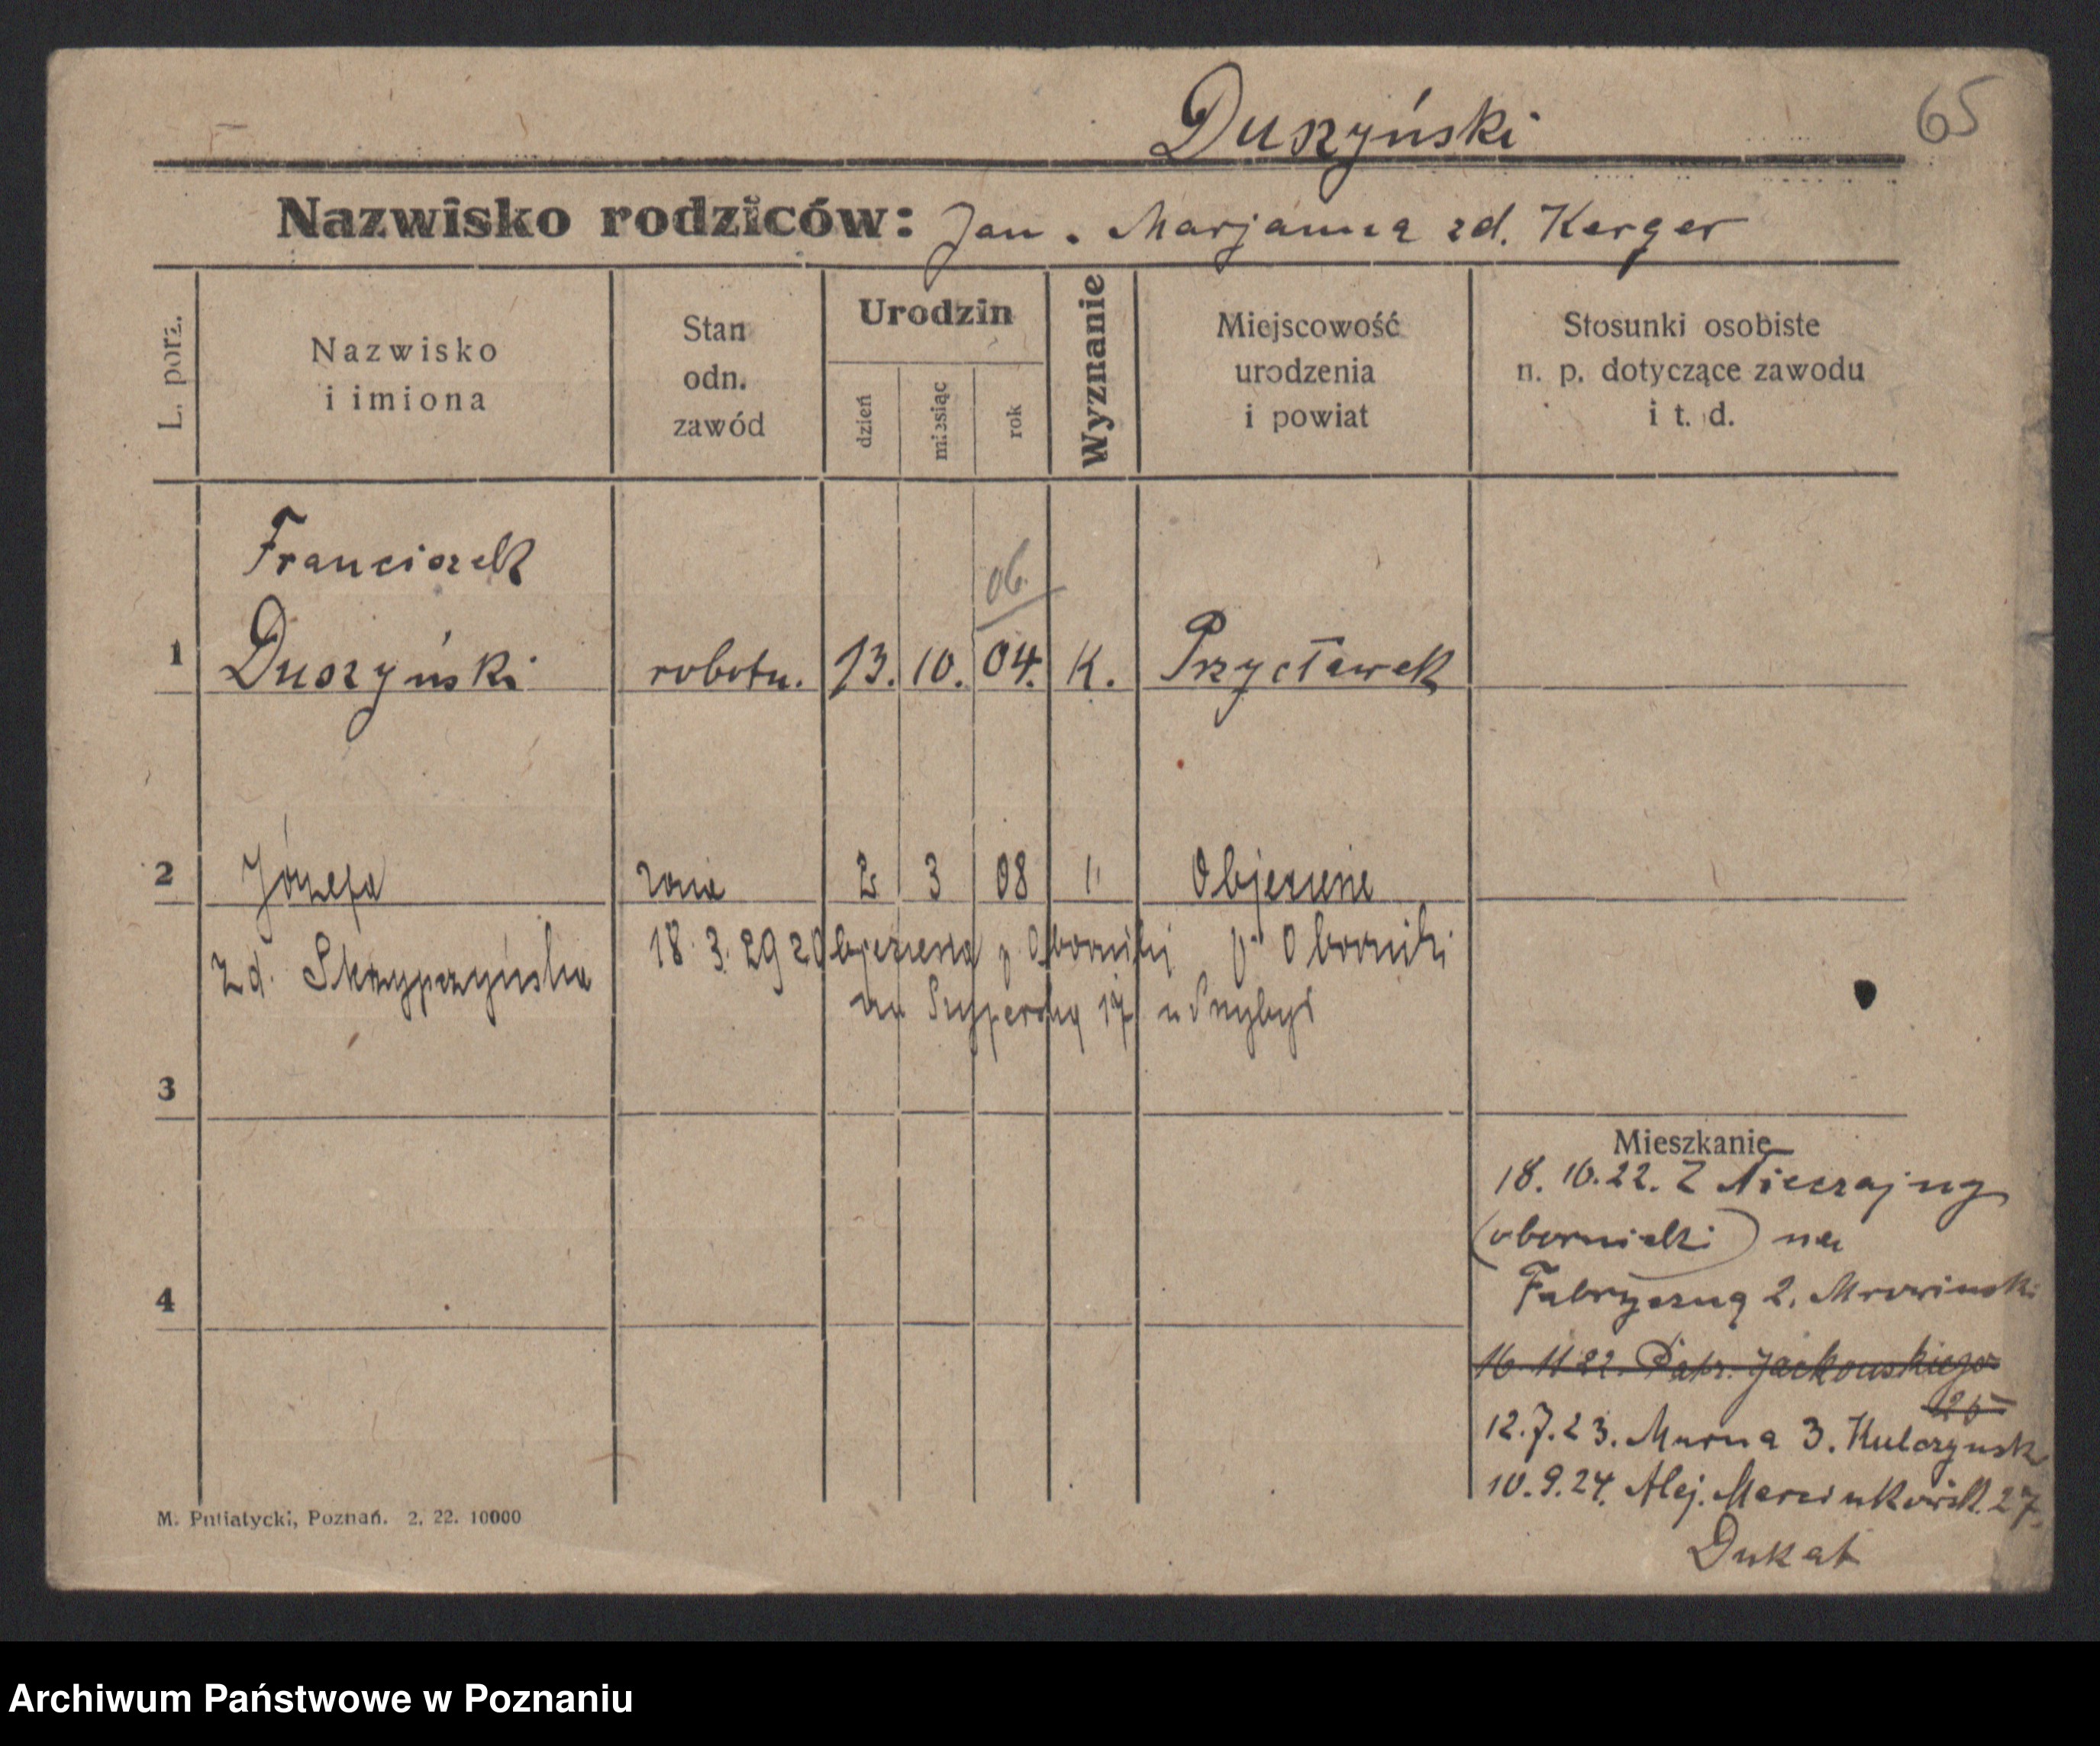 Duszyński
65
Nazwisko rodziców: Jan . Marjanna zd. Kerger
L. porz.
Nazwisko
i imiona
Stan
odn.
zawód
Urodzin
dzień
miesiąc
rok
Wyznanie
Miejscowość
urodzenia
i powiat
Stosunki osobiste
n. p. dotyczące zawodu
i t. d.
Franciszek
06.
1 Duszyński robotn. 13. 10. 04. K. Przycławek
2 Józefa żona 2 3 08 " Objezierze
18. 3. 29 z Objezierza p. Oborniki p. Oborniki
zd. Skrzypczyńska
na Szyperską 17 przybył
3
4
Mieszkanie
18. 10. 22. Z Nieczajny
(obornicki) na
Fabryczną 2. Mrowinski
16 11 22. Patr. Jackowskiego
25
12. 7. 23. Murna 3. Kulczynsk
10. 9. 24. Alej. Marcinkowsk. 27.
Dukat
M. Putiatycki, Poznań. 2. 22. 10000
Archiwum Państwowe w Poznaniu